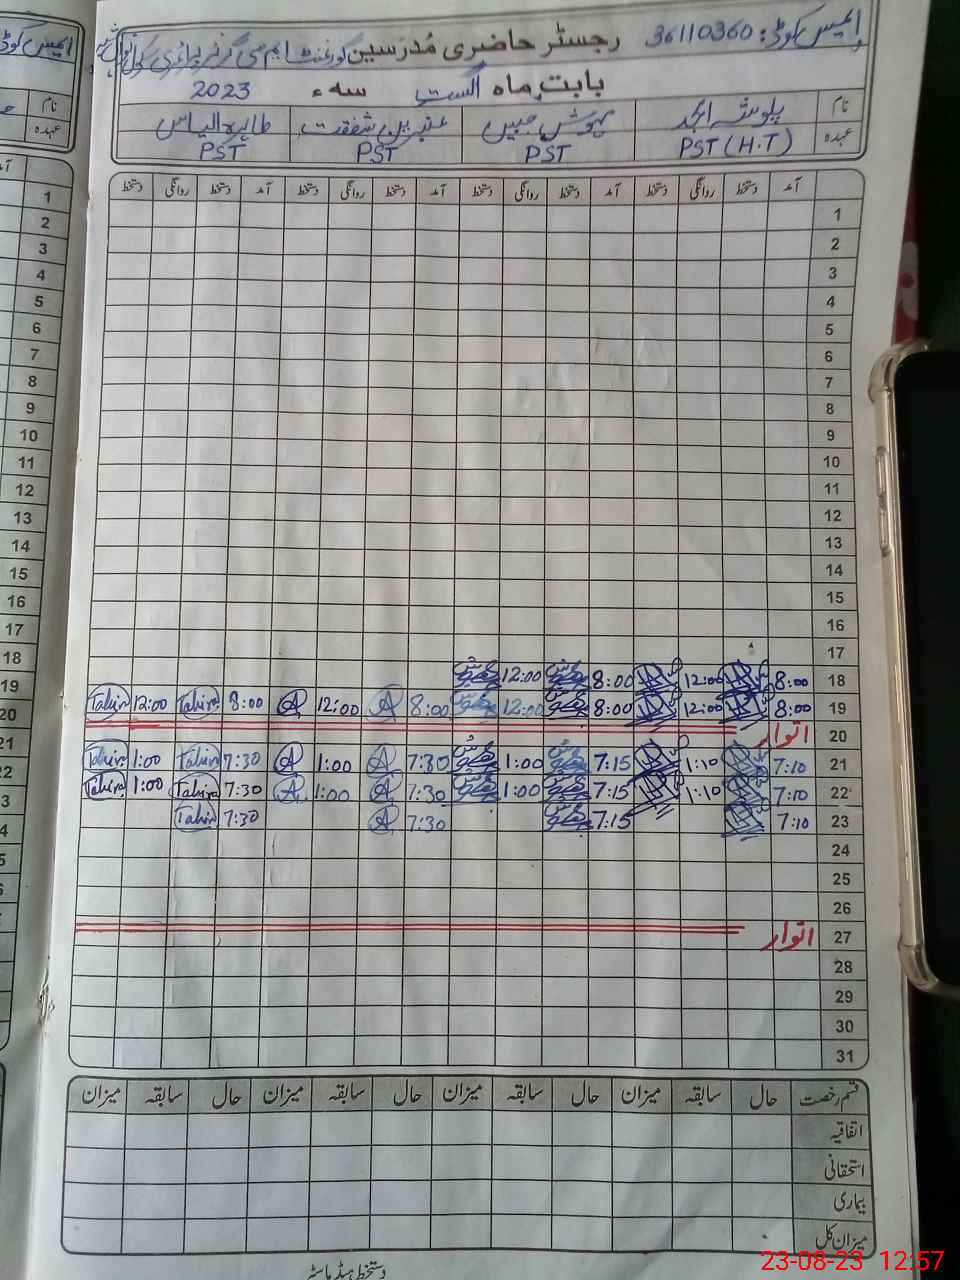 ایمیس کوڈ: 36110360 رجسٹر حاضری مُدرسین گورنمنٹ ایم سی گرلز پرائمری
بابت ماہ اگست سہ ء 2023
نام پلوشہ امجد مہوش جبیں عنبرین شفقت طاہرہ الیاس
عہدہ PST (H.T) PST PST PST
آمد دستخط روانگی دستخط آمد دستخط روانگی دستخط آمد دستخط روانگی دستخط آمد دستخط روانگی دستخط
1
2
3
4
5
6
7
8
9
10
11
12
13
14
15
16
17
18 8:00 12:00 8:00 مہوش 12:00 مہوش
19 8:00 12:00 8:00 مہوش 12:00 مہوش 8:00 A 12:00 A 8:00 Tahira 12:00 Tahira
20 اتوار
21 7:10 1:10 7:15 مہوش 1:00 مہوش 7:30 A 1:00 A 7:30 Tahira 1:00 Tahira
22 7:10 1:10 7:15 مہوش 1:00 مہوش 7:30 A 1:00 A 7:30 Tahira 1:00 Tahira
23 7:10 7:15 مہوش 7:30 A 7:30 Tahira
24
25
26
27 اتوار
28
29
30
31
قسم رخصت حال سابقہ میزان حال سابقہ میزان حال سابقہ میزان حال سابقہ میزان
اتفاقیہ
استحقاقی
بیماری
میزان کل
دستخط ہیڈ ماسٹر
23-08-23 12:57